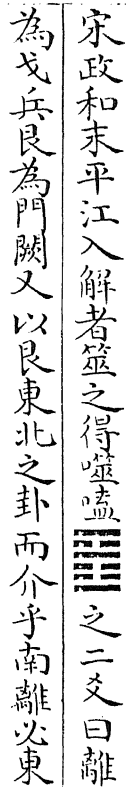 宋政和末平江入解者筮之得噬嗑䷔之二爻曰離
為戈兵艮為門闕又以艮東北之卦而介乎南離必東